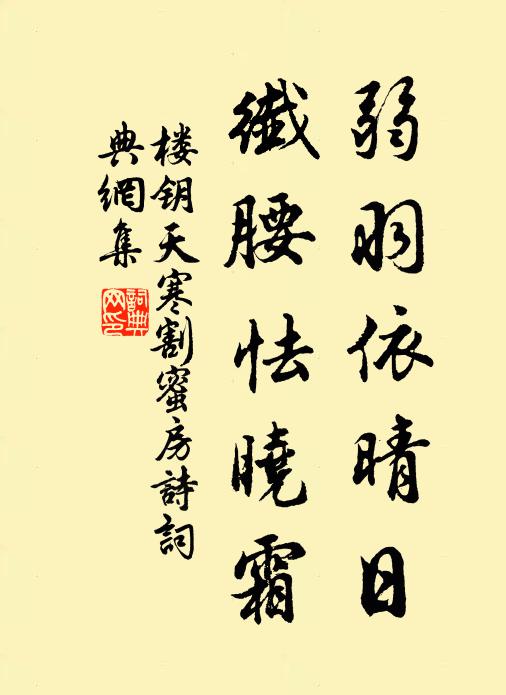 弱羽依晴日
纖腰怯曉霜
楼钥天寒割蜜房詩詞
典網集
詞典
网印